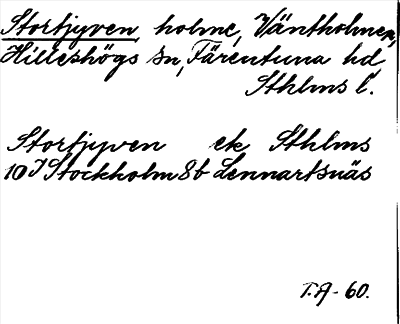 Stortjyven holme, Väntholmen,
Hilleshögs sn, Färentuna hd,
Sthlms l.
Stortjyven ek Sthlms
10 I Stockholm 8b Lennartsnäs
T.A - 60.